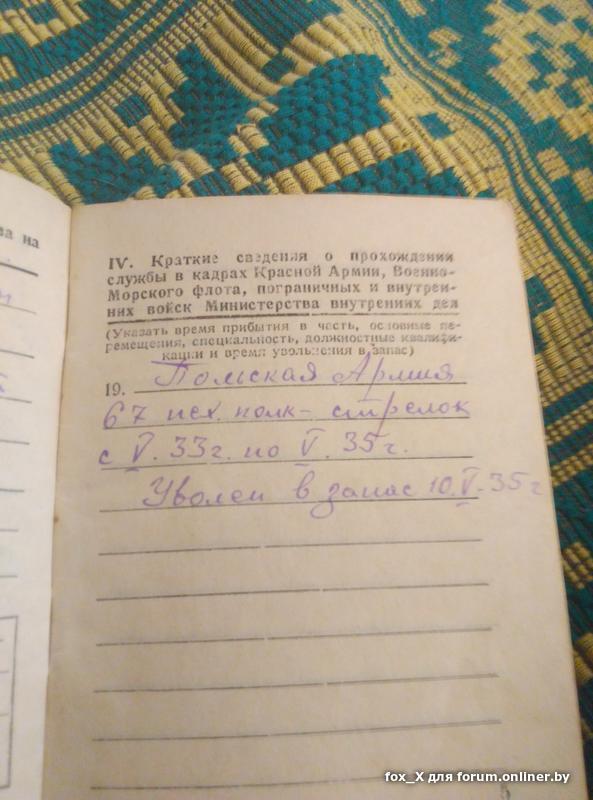 ва на
IV. Краткие сведения о прохождении
службы в кадрах Красной Армии, Военно-
Морского флота, пограничных и внутрен-
них войск Министерства внутренних дел
(Указать время прибытия в часть, основные пе-
ремещения, специальность, должностные квалифи-
кации и время увольнения в запас)
19. Польская Армия
67 пех. полк - стрелок
с V. 33г. по V. 35г.
Уволен в запас 10.V.35г
5
fox_X для forum.onliner.by